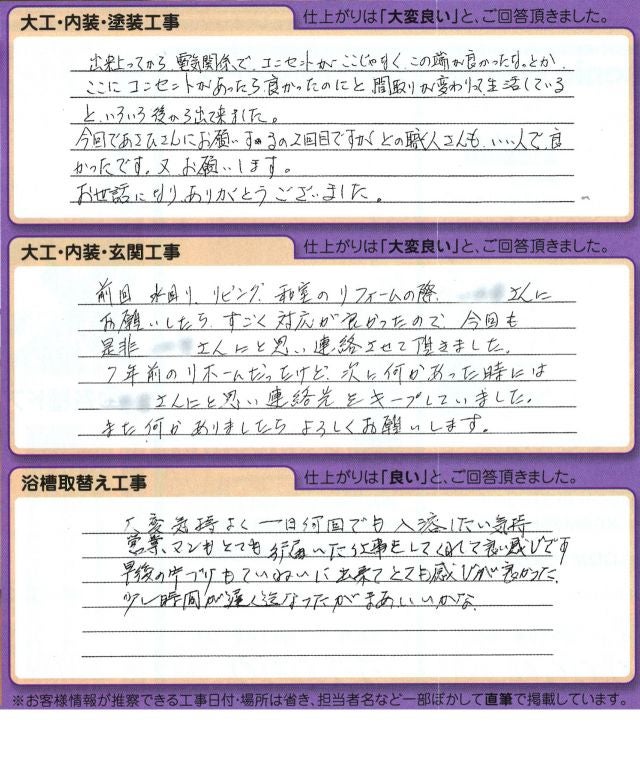 大工・内装・塗装工事
仕上がりは「大変良い」と、ご回答頂きました。
出来上ってから 電気関係で コンセントが ここじゃなく この端が良かったな。とか
ここに コンセントがあったら 良かったのにと 間取りが変わって 生活している
と いろいろ 後から出て来ました。
今回であさひさんにお願いするの2回目ですが どの職人さんも いい人で 良
かったです。又 お願いします。
お世話になり ありがとうございました。
大工・内装・玄関工事
仕上がりは「大変良い」と、ご回答頂きました。
前回 水回り、リビング、和室の リフォームの際、 さんに
お願いしたら、すごく 対応が 良かったので、今回も
是非 さんにと思い 連絡させて 頂きました。
7年前のリホームだったけど、次に 何かあった時には
さんにと思い 連絡先を キープしていました。
また何か ありましたら よろしくお願いします。
浴槽取替え工事
仕上がりは「良い」と、ご回答頂きました。
大変気持よく 一日何回でも 入浴したい気持
営業マンもとても 行届いた仕事をしてくれて良い感じです
最後の手づりも ていねいに出来て とても感じが良かった
少し時間が遅く なったが まあいいかな
※お客様情報が推察できる工事日付・場所は省き、担当者名など一部ぼかして直筆で掲載しています。